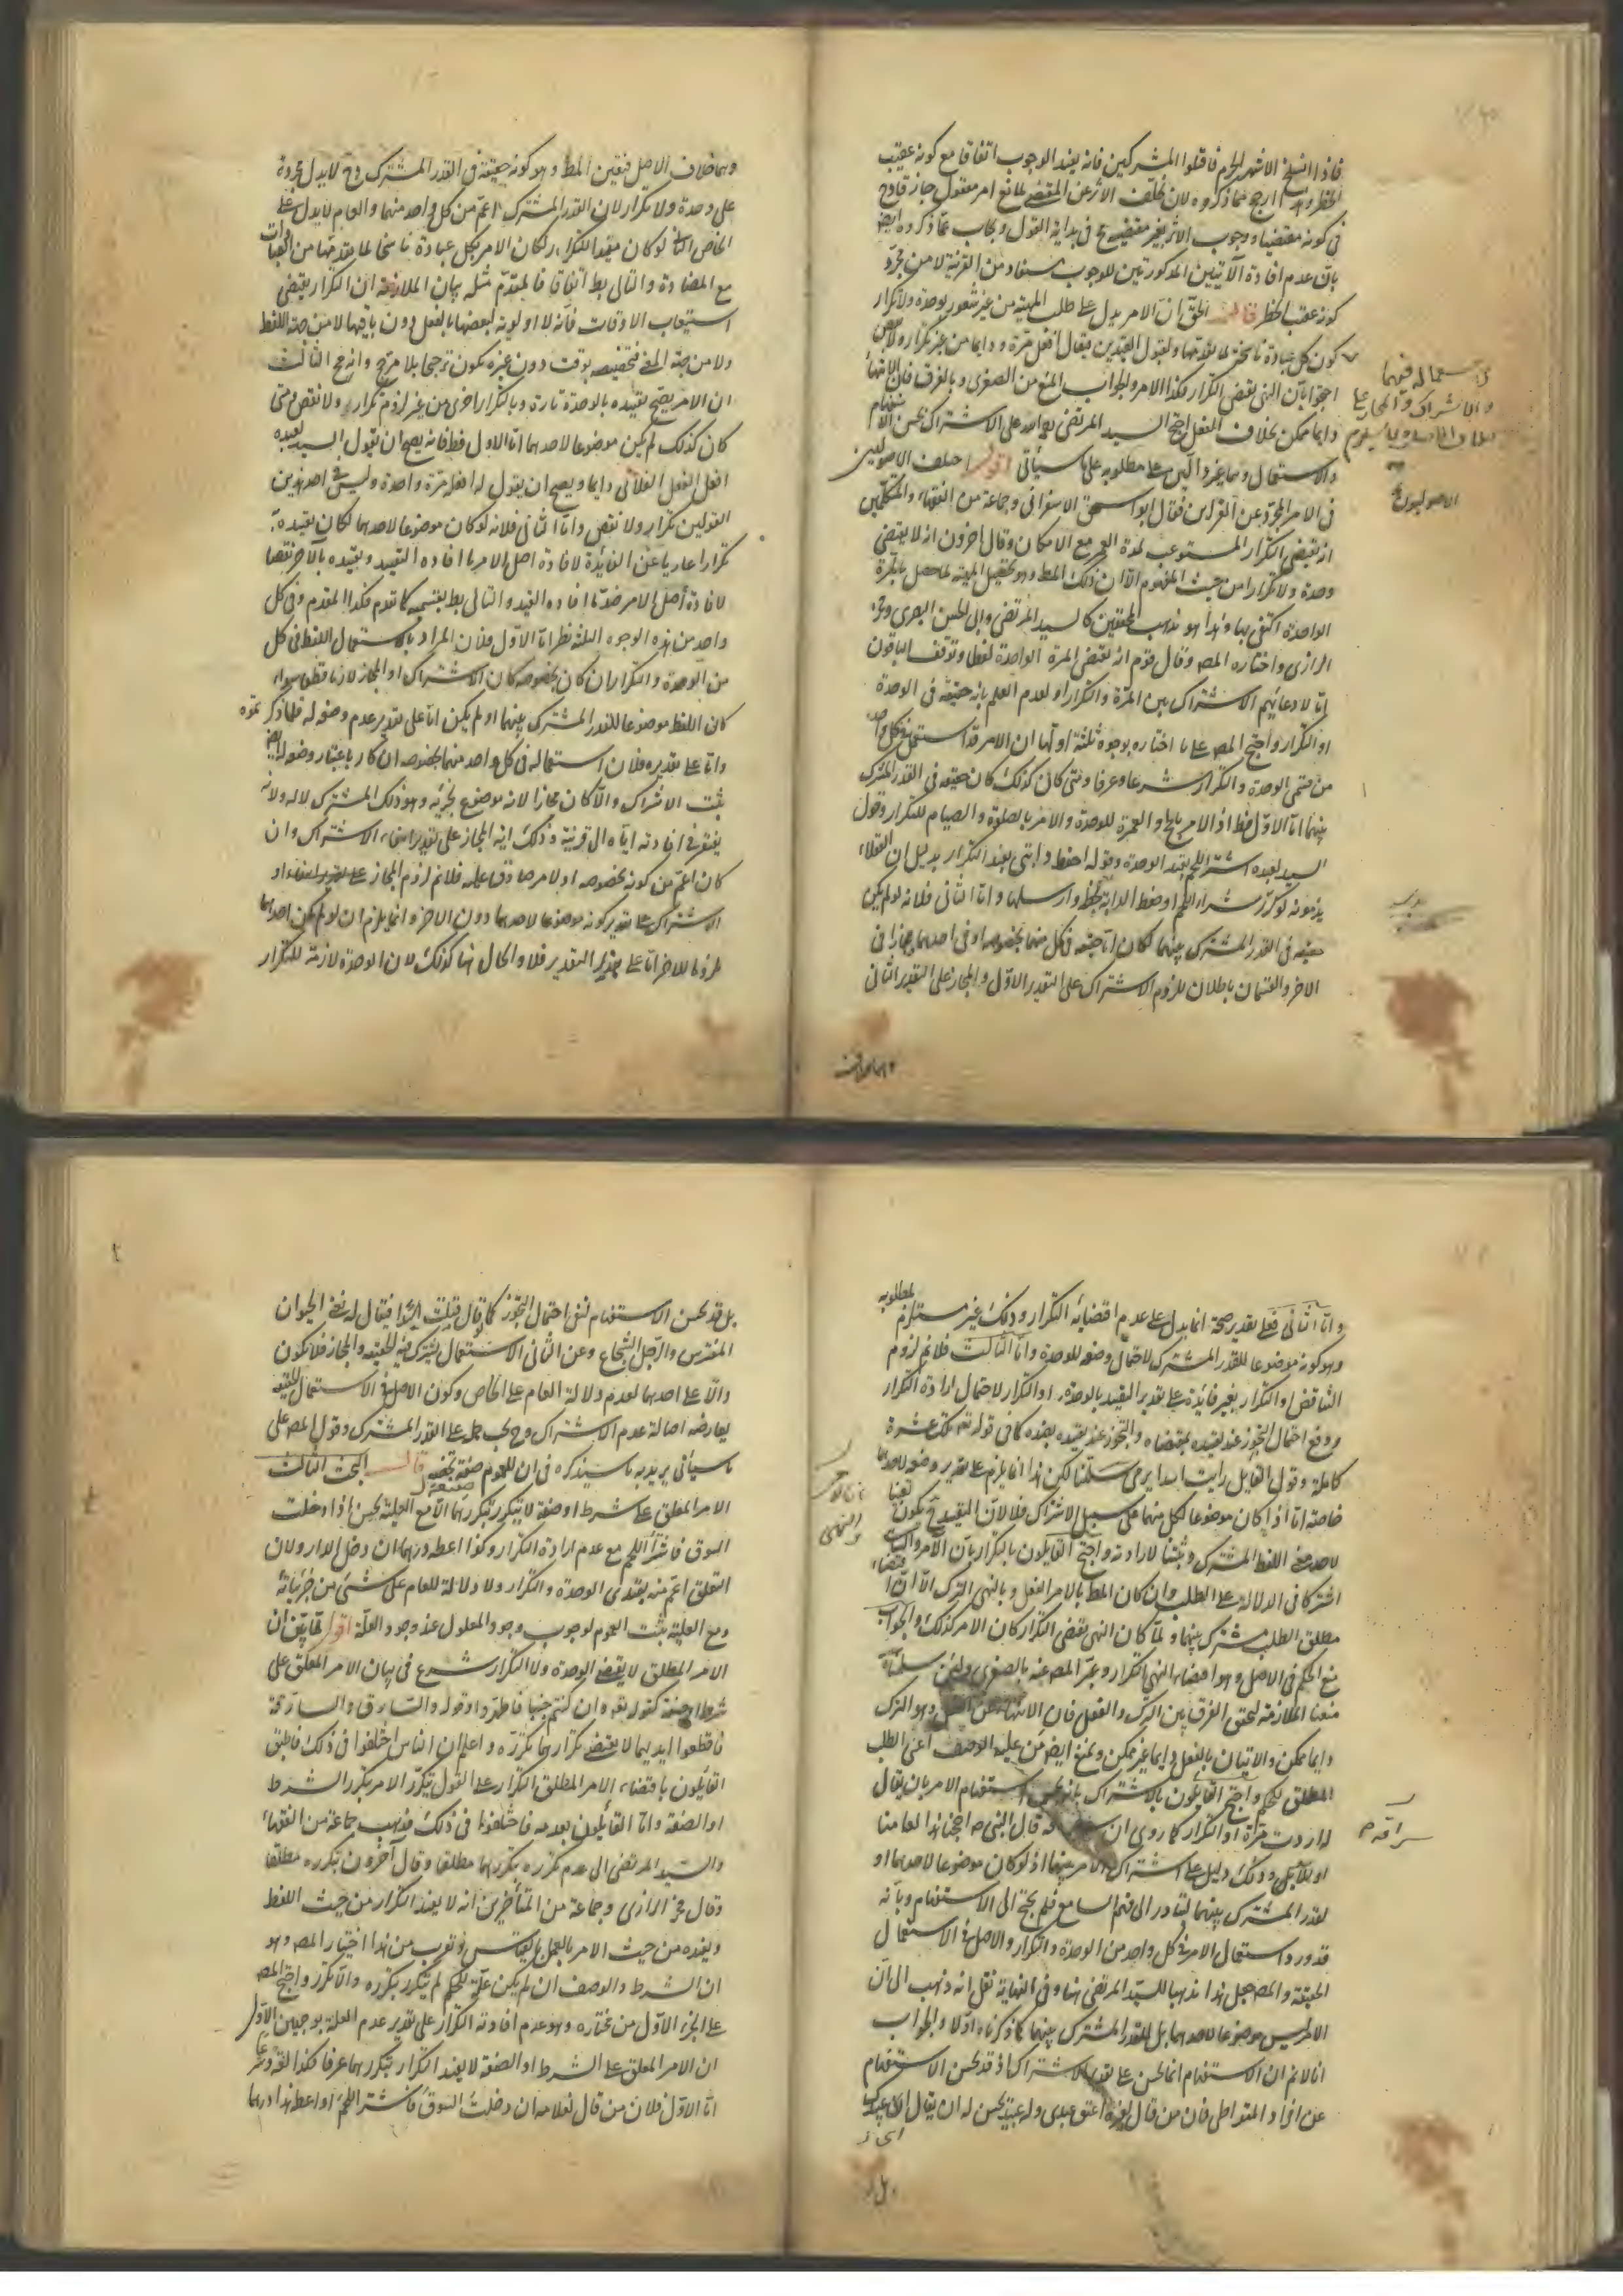 فاذا انسلخ الاشهر الحرم فاقتلوا المشركين فانه يفيد الوجوب اتفاقا مع كونه عقيب
ارجح مما ذكروه لان تخلف الاثر عن المقتضى لمانع امر معقول جاز قادح
فى كونه مقتضيا ووجوب الاثر بغير مقتضيه فى بداية القول ويجاب عما ذكروه ايض
بان عدم افادة الآيتين المذكورتين للوجوب مستفاد من القرينة لا من مجرد
كونه عقيب الحظر قال الحق ان الامر يدل على طلب المهية من غير شعور بوحدة ولا تكرار
كون كل عبادة ناسخة لما تقدمها ولقبول القيدين فيقال افعل مرة ودايما من غير تكرار ولا نقض
احتجوا بان النهى يقتضى التكرار فكذا الامر والجواب المنع من الصغرى وبالفرق فان الانتهاء
دايما ممكن بخلاف الفعل احتج السيد المرتضى على الاشتراك بحسن الاستفهام
والاستعمال وهما غير دالين على مطلوبه على ما سيأتى اقول اختلف الاصوليون
فى الامر المجرد عن القراين فقال ابو اسحق الاسفراينى وجماعة من الفقهاء والمتكلمين
انه يقتضى التكرار المستوعب لمدة العمر مع الامكان وقال اخرون انه لا يقتضى
وحدة ولا تكرارا من حيث المفهوم الا ان ذلك المط وهو تحصيل المهية لما حصل بالمرة
الواحدة اكتفى بها وهذا هو مذهب المحققين كالسيد المرتضى وابى الحسن البصرى وفخر
الرازى واختاره المص وقال قوم انه يقتضى المرة الواحدة لفظا وتوقف الباقون
اما لادعائهم الاشتراك بين المرة والتكرار او لعدم العلم بانه حقيقة فى الوحدة
او التكرار واحتج المص على ما اختاره بوجوه ثلثة اولها ان الامر قد استعمل فى كل واحد
من قسمى الوحدة والتكرار شرعا وعرفا ومتى كان كذلك كان حقيقة فى القدر المشترك
بينهما اما الاول فظ اذ الامر بالحج والعمرة للوحدة والامر بالصلوة والصيام للتكرار وقول
السيد لعبده اشتر اللحم يفيد الوحدة وقوله احفظ دابتى يفيد التكرار بدليل ان العقلاء
يذمونه لو كرر شراء اللحم او حفظ الدابة لحظة وارسلها واما الثانى فلانه لو لم يكن
حقيقة فى القدر المشترك بينهما لكان اما حقيقة فى كل منهما بخصوصه او فى احدهما مجازا فى
الاخر والقسمان باطلان للزوم الاشتراك على التقدير الاول والمجاز على التقدير الثانى
وهما خلاف
الاصوليون
وهما خلاف الاصل فتعين المط وهو كونه حقيقة فى القدر المشترك وح لا يدل بمجرده
على وحدة ولا تكرار لان القدر المشترك اعم من كل واحد منهما والعام لا يدل على
الخاص الثانى لو كان مفيدا للتكرار لكان الامر بكل عبادة ناسخا لما تقدمها من العبادات
مع المضادة والتالى بط اتفاقا فالمقدم مثله بيان الملازمة ان التكرار يقتضى
استيعاب الاوقات فانه لا اولوية لبعضها بالفعل دون باقيها لا من جهة اللفظ
ولا من جهة المعنى فتخصيصه بوقت دون غيره يكون ترجيحا بلا مرجح وانه مح الثالث
ان الامر يصح تقييده بالوحدة تارة وبالتكرار اخرى من غير لزوم تكرار ولا نقض ومتى
كان كذلك لم يكن موضوعا لاحدهما اما الاول فظ فانه يصح ان يقول السيد لعبده
افعل الفعل الفلانى دايما ويصح ان يقول له افعله مرة واحدة وليس فى احد هذين
القولين تكرار ولا نقض واما الثانى فلانه لو كان موضوعا لاحدهما لكان تقييده به
تكرارا عاريا عن الفايدة لافادة اصل الامر ما افاده القيد وتقييده بالآخر نقضا
لافادة اصل الامر ضد ما افاده القيد والتالى بط بقسميه كما تقدم فكذا المقدم وفى كل
واحد من هذه الوجوه الثلثة نظر اما الاول فلان المراد باستعمال اللفظ فى كل
من الوحدة والتكرار ان كان بخصوصه كان الاشتراك او المجاز لازما قطعا سواء
كان اللفظ موضوعا للقدر المشترك بينهما او لم يكن اما على تقدير عدم وضعه له فلما ذكرتموه
واما على تقديره فلان استعماله فى كل واحد منهما بخصوصه ان كان باعتبار وضعه له ايض
يثبت الاشتراك والا كان مجازا لانه موضوع لجزئه وهو ذلك المشترك لا له ولانه
يفتقر فى افادته اياه الى قرينة وذلك اية المجاز على تقدير انتفاء الاشتراك وان
كان اعم من كونه بخصوصه او لا مر صادق عليه فلا نم لزوم المجاز
الاشتراك على تقدير كونه موضوعا لاحدهما دون الاخر وانما يلزم ان لو لم يكن احدهما
ملزوما للاخر اما على هذا التقدير فلا والحال هنا كذلك لان الوحدة لازمة للتكرار
واما الثانى فعلى تقدير صحته انما يدل على عدم اقتضائه التكرار وذلك غير مستلزم لمطلوبه
وهو كونه موضوعا للقدر المشترك لاحتمال وضعه للوحدة واما الثالث فلا نم لزوم
التناقض او التكرار بغير فايدة على تقدير التقييد بالوحدة او التكرار لاحتمال ارادة التكرار
ورفع احتمال التجوز عند تقييده بمقتضاه والتجوز عند تقييده بضده كما فى قوله تع تلك عشرة
كاملة وقول القايل رايت اسدا يرمى سلمنا لكن هذا انما يلزم على تقدير وضعه لاحدهما
خاصة اما اذا كان موضوعا لكل منهما على سبيل الاشتراك فلا لان التقييد ح يكون
لاحد معنى اللفظ المشترك ومثبتا لارادته واحتج القايلون بالتكرار بان الامر والنهى
اشتركا فى الدلالة على الطلب وان كان المط بالامر الفعل وبالنهى الترك الا ان
مطلق الطلب مشترك بينهما ولما كان النهى يقتضى التكرار كان الامر كذلك والجواب
منع الحكم فى الاصل وهو اقتضاء النهى التكرار وعبر المص عنه بالصغرى ولئن سلمناه
منعنا الملازمة لتحقق الفرق بين الترك والفعل فان الانتهاء عن الفعل وهو الترك
دايما ممكن والاتيان بالفعل دايما غير ممكن ونمنع ايض من علية الوصف اعنى الطلب
المطلق للحكم واحتج القايلون بالاشتراك بانه يحسن استفهام الامر بان يقال
له اردت مرة او التكرار كما روى ان سراقة قال للنبى ص احجنا هذا لعامنا
او للابد وذلك دليل على اشتراك الامر بينهما اذ لو كان موضوعا لاحدهما او
للقدر المشترك بينهما لتبادر الى فهم السامع فلم يحتج الى الاستفهام وبانه
قد ورد استعمال الامر فى كل واحد من الوحدة والتكرار والاصل فى الاستعمال
الحقيقة والمص جعل هذا مذهبا للسيد المرتضى هنا وفى النهاية نقل انه ذهب الى ان
الامر ليس موضوعا لاحدهما بل للقدر المشترك بينهما كما ذكرناه اولا والجواب
انا لا نم ان الاستفهام انما يحسن على تقدير الاشتراك اذ قد يحسن الاستفهام
عن افراد المتواطى فان من قال لغيره اعتق عبدى وله عبيد يحسن له ان يقال اى عبيدك
سراقة
بل قد
بل قد يحسن الاستفهام لنفى احتمال التجوز كما لو قال رايت اسدا فيقال له تعنى الحيوان
المفترس او الرجل الشجاع وعن الثانى الاستعمال يشترك فيه الحقيقة والمجاز فلا يكون
دالا على احدهما لعدم دلالة العام على الخاص وكون الاصل فى الاستعمال الحقيقة
يعارضه اصالة عدم الاشتراك وح يجب حمله على القدر المشترك وقول المص على
ما سيأتى يريد به ما سيذكره فى ان للعموم صيغة تخصه قال البحث الثالث
الامر المعلق على شرط او صفة لا يتكرر بتكررهما الا مع العلية يحسن اذا دخلت
السوق فاشتر اللحم مع عدم ارادة التكرار وكذا اعطه درهما ان دخل الدار ولان
التعلق اعم من قيدى الوحدة والتكرار ولا دلالة للعام على شىء من جزئياته
ومع العلية يثبت العموم لوجوب وجود المعلول عند وجود العلة اقول لما بين ان
الامر المطلق لا يقتضى الوحدة ولا التكرار شرع فى بيان الامر المعلق على
شرط او صفة كقوله تع وان كنتم جنبا فاطهروا وقوله والسارق والسارقة
فاقطعوا ايديهما لا يقتضى تكرارهما تكرره واعلم ان الناس اختلفوا فى ذلك فاطبق
القايلون باقتضاء الامر المطلق التكرار على القول بتكرر الامر بتكرر الشرط
او الصفة واما القايلون بعدمه فاختلفوا فى ذلك فذهب جماعة من الفقهاء
والسيد المرتضى الى عدم تكرره بتكررهما مطلقا وقال آخرون بتكرره مطلقا
وقال فخر الرازى وجماعة من المتأخرين انه لا يفيد التكرار من حيث اللفظ
ويفيده من حيث الامر بالعمل بالقياس وقريب من هذا اختيار المص وهو
ان الشرط والوصف ان لم يكن علة للحكم لم يتكرر بتكرره والا تكرر واحتج المص
على الجزء الاول من مختاره وهو عدم افادته التكرار على تقدير عدم العلة بوجهين الاول
ان الامر المعلق على الشرط او الصفة لا يفيد التكرار بتكررهما عرفا فكذا لغة وشرعا
اما الاول فلان من قال لغلامه ان دخلت السوق فاشتر اللحم او اعط هذا درهما